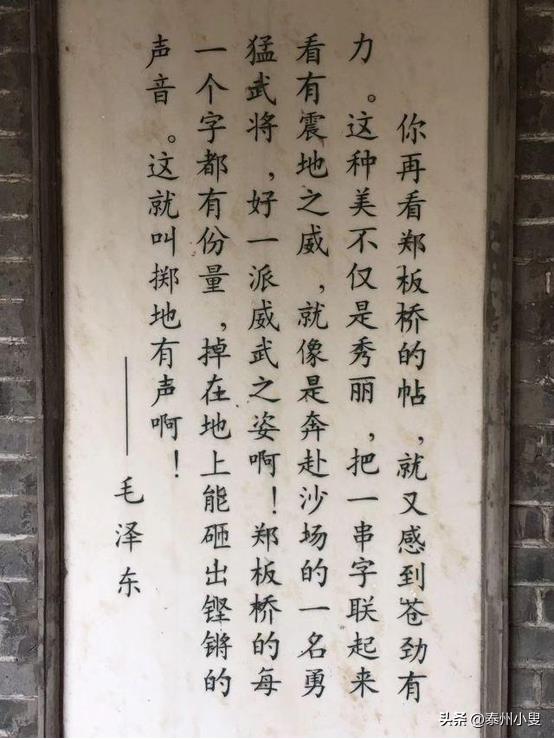 你再看郑板桥的帖，就又感到苍劲有
力。这种美不仅是秀丽，把一串字联起来
看有震地之威，就像是奔赴沙场的一名勇
猛武将，好一派威武之姿啊！郑板桥的每
一个字都有份量，掉在地上能砸出铿锵的
声音。这就叫掷地有声啊！
——毛泽东
头条@泰州小叟